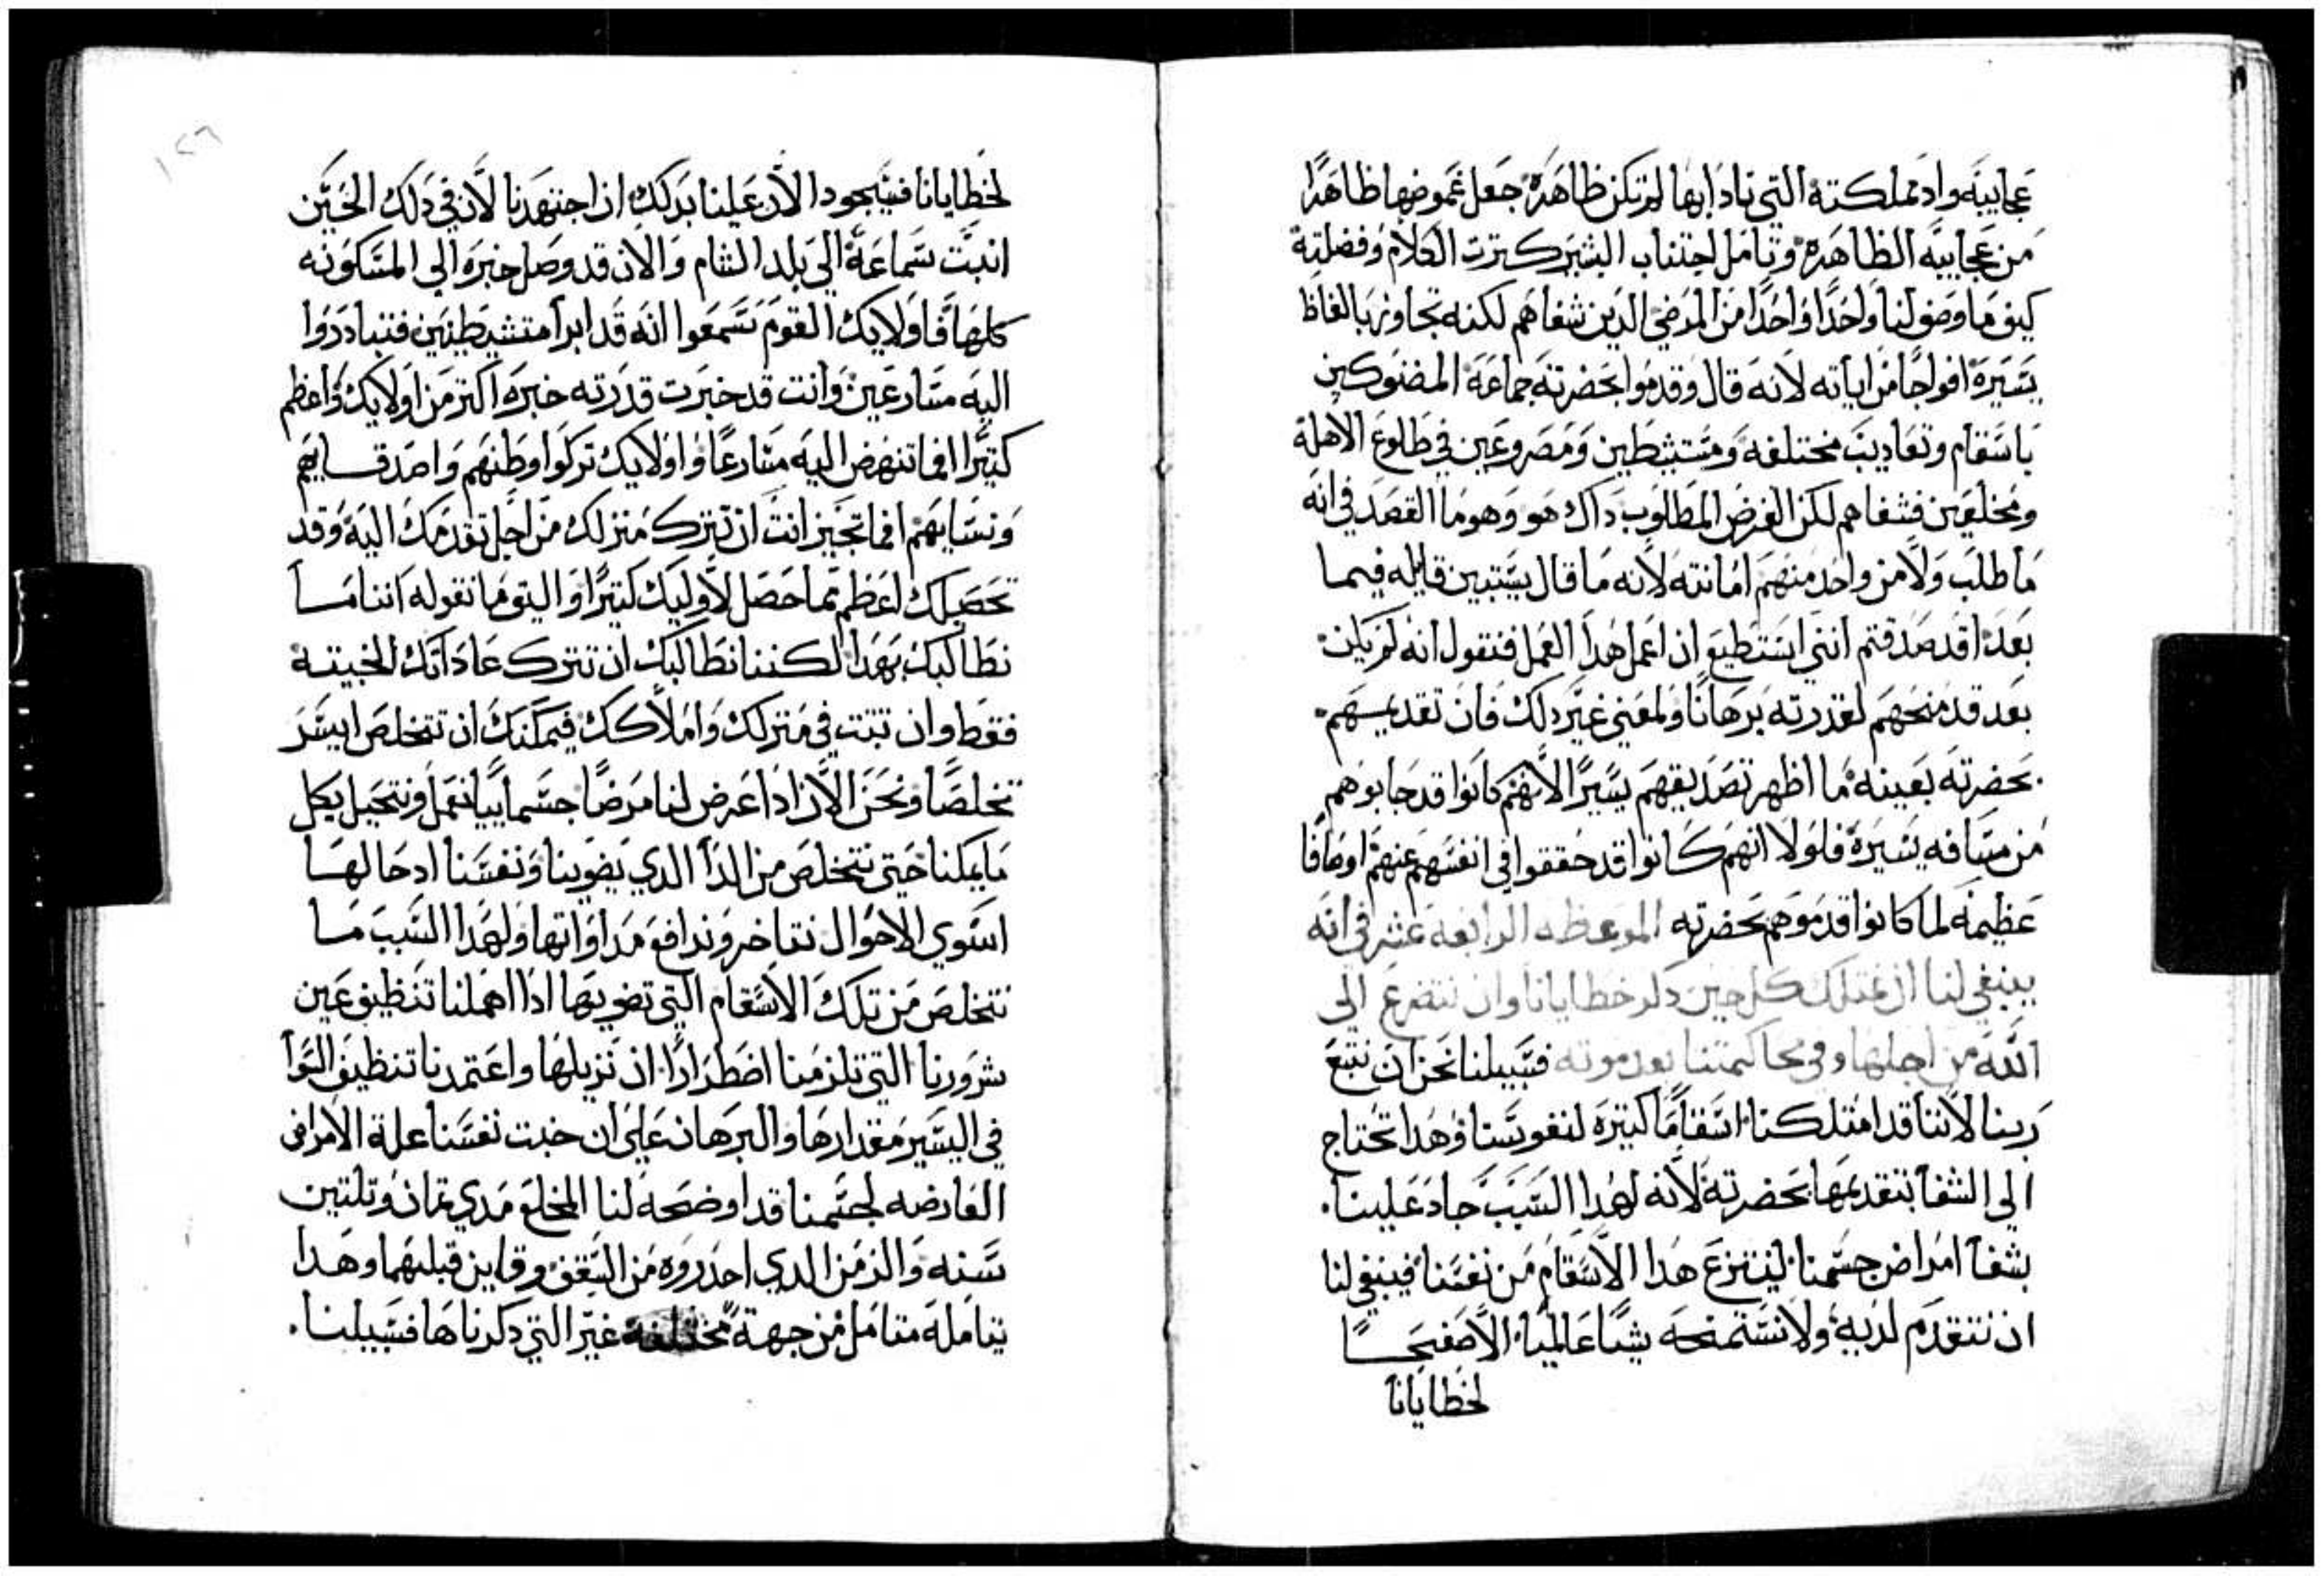 عجايبه واد مملكته التي نادا بها لم تكن ظاهره جعل غموضها ظاهرا
من عجايبه الظاهره وتامل اجتناب البشير كترت الكلام وفضلته
كيف ما وصف لنا واحدا واحدا من المرضي الدين شفاهم لكنه تجاوز بالفاظ
يسيره افواجا من اياته لانه قال وقدموا بحضرته جماعة المضنوكين
باسقام وتعاديب مختلفه ومتشيطين ومصروعين في طلوع الاهلة
ومخلعين فشفاهم لكن الغرض المطلوب داك هو وهو ما القصد في انه
ما طلب ولا من واحد منهم امانته لانه ما قال يستبين قايله فيما
بعد اقد صدقتم انني استطيع ان اعمل هدا العمل فنقول انه لم يكن
بعد قد منحهم لقدرته برهانا ولمعني غير دلك فان تقديمهم
بحضرته بعينه ما اظهر تصديقهم يسيرا لانهم كانوا قد جابوهم
من مسافه يسيره فلولا انهم كانوا قد حققوا في انفسهم عنهم اوصافا
عظيمه لما كانوا قدموهم بحضرته الموعظه الرابعه عشر في انه
ينبغي لنا ان نمتلك كل حين دكر خطايانا وان نتضرع الى
الله من اجلها وفي محاكمتنا بعد موته فسبيلنا نحن ان نتبع
ربنا لاننا قد امتلكنا اسقاما كتيره لنفوسنا وهدا تحتاج
الي الشفا بتقديمها بحضرته لانه لهدا السبب جاد علينا
بشفا امراض جسمنا لينتزع هدا الاسقام من نفسنا فينبغي لنا
ان نتقدم لديه ولا نستمنحه شيا عالميا الا صفحا
لخطايانا
لخطايانا فيجود الان علينا بدلك ان اجتهدنا لان في دلك الحين
انبتت سماعة الي بلد الشام والان قد وصل خبره الي المسكونه
كلها فاولايك القوم سمعوا انه قد ابرا متشيطنين فتبادروا
اليه مسارعين وانت قد خبرت قدرته خبره اكتر من اولايك واعظم
كتيرا افما تنهض اليه مسارعا واولايك تركوا وطنهم واصدقايهم
ونسايهم افما تجيز انت ان تترك منزلك من اجل تقدمك اليه وقد
تحصلك اعظم مما حصل لاوليك كتيرا واليق ما نقوله اننا ما
نطالبك بهدا لكننا نطالبك ان تترك عاداتك الخبيته
فقط وان تتبت في منزلك واملاكك فيمكنك ان تتخلص ايسر
تخلصا ونحن الان ادا عرض لنا مرضا جسماييا نعمل ونتحيل بكل
ما يمكنا حتي نتخلص من الدا الدي يضوينا ونفسنا اد حالها
اسوي الاحوال نتاخر وندافع مداواتها ولهدا السبب ما
نتخلص من تلك الاسقام التي تضويها ادا اهملنا تنظيف عين
شرورنا التي تلزمنا اضطرارا ان نزيلها واعتمدنا تنظيف السوا
في اليسير مقدارها والبرهان علي ان خبت نفسنا علة الامراض
العارضه لجسمنا قد اوضحه لنا المخلع مدي تمان وتلتين
سنه والزمن الدي احدروه من السقف وقاين قبلهما وهدا
يتامله متامل من جهة مختلفة غير التي دكرناها فسبيلنا